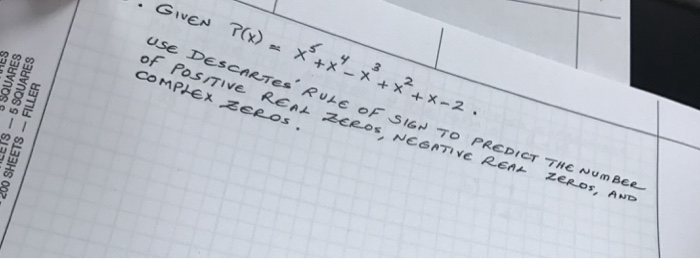 • GIVEN P(x) = x⁵+x⁴-x³+x²+x-2.
USE DESCARTES' RULE OF SIGN TO PREDICT THE NUMBER
OF POSITIVE REAL ZEROS, NEGATIVE REAL ZEROS, AND
COMPLEX ZEROS.
5 SQUARES
EETS — 5 SQUARES
200 SHEETS — FILLER